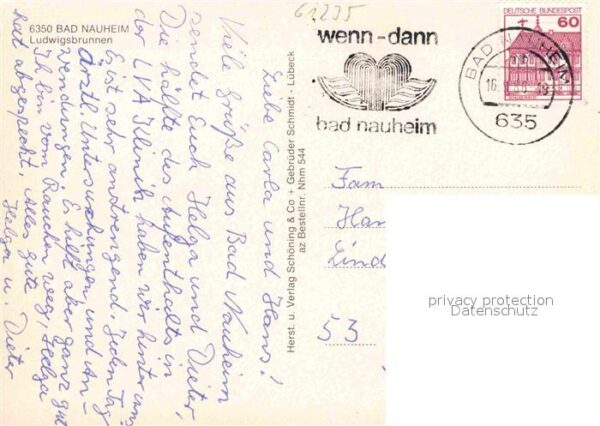 6350 BAD NAUHEIM
Ludwigsbrunnen
61235
wenn-dann
bad nauheim
BAD NAUHEIM
16.
635
DEUTSCHE BUNDESPOST
60
Liebe Carla und Hans!
Viele Grüße aus Bad Nauheim
sendet Euch Helga und Dieter,
Die hälfte des Aufenthalts in
der LVA Klinik haben wir hinter uns.
Es ist sehr anstrengend. Jeden Tag
ärztl. Untersuchungen und An-
wendungen. Es hilft aber ganz gut
Ich bin vom Rauchen weg, Helga
hat abgespeckt. Alles gute
Helga u. Dieter
Herst. u. Verlag Schöning & Co + Gebrüder Schmidt · Lübeck
az Bestellnr. Nhm 544
Fam
Han
Lind
53
privacy protection
Datenschutz